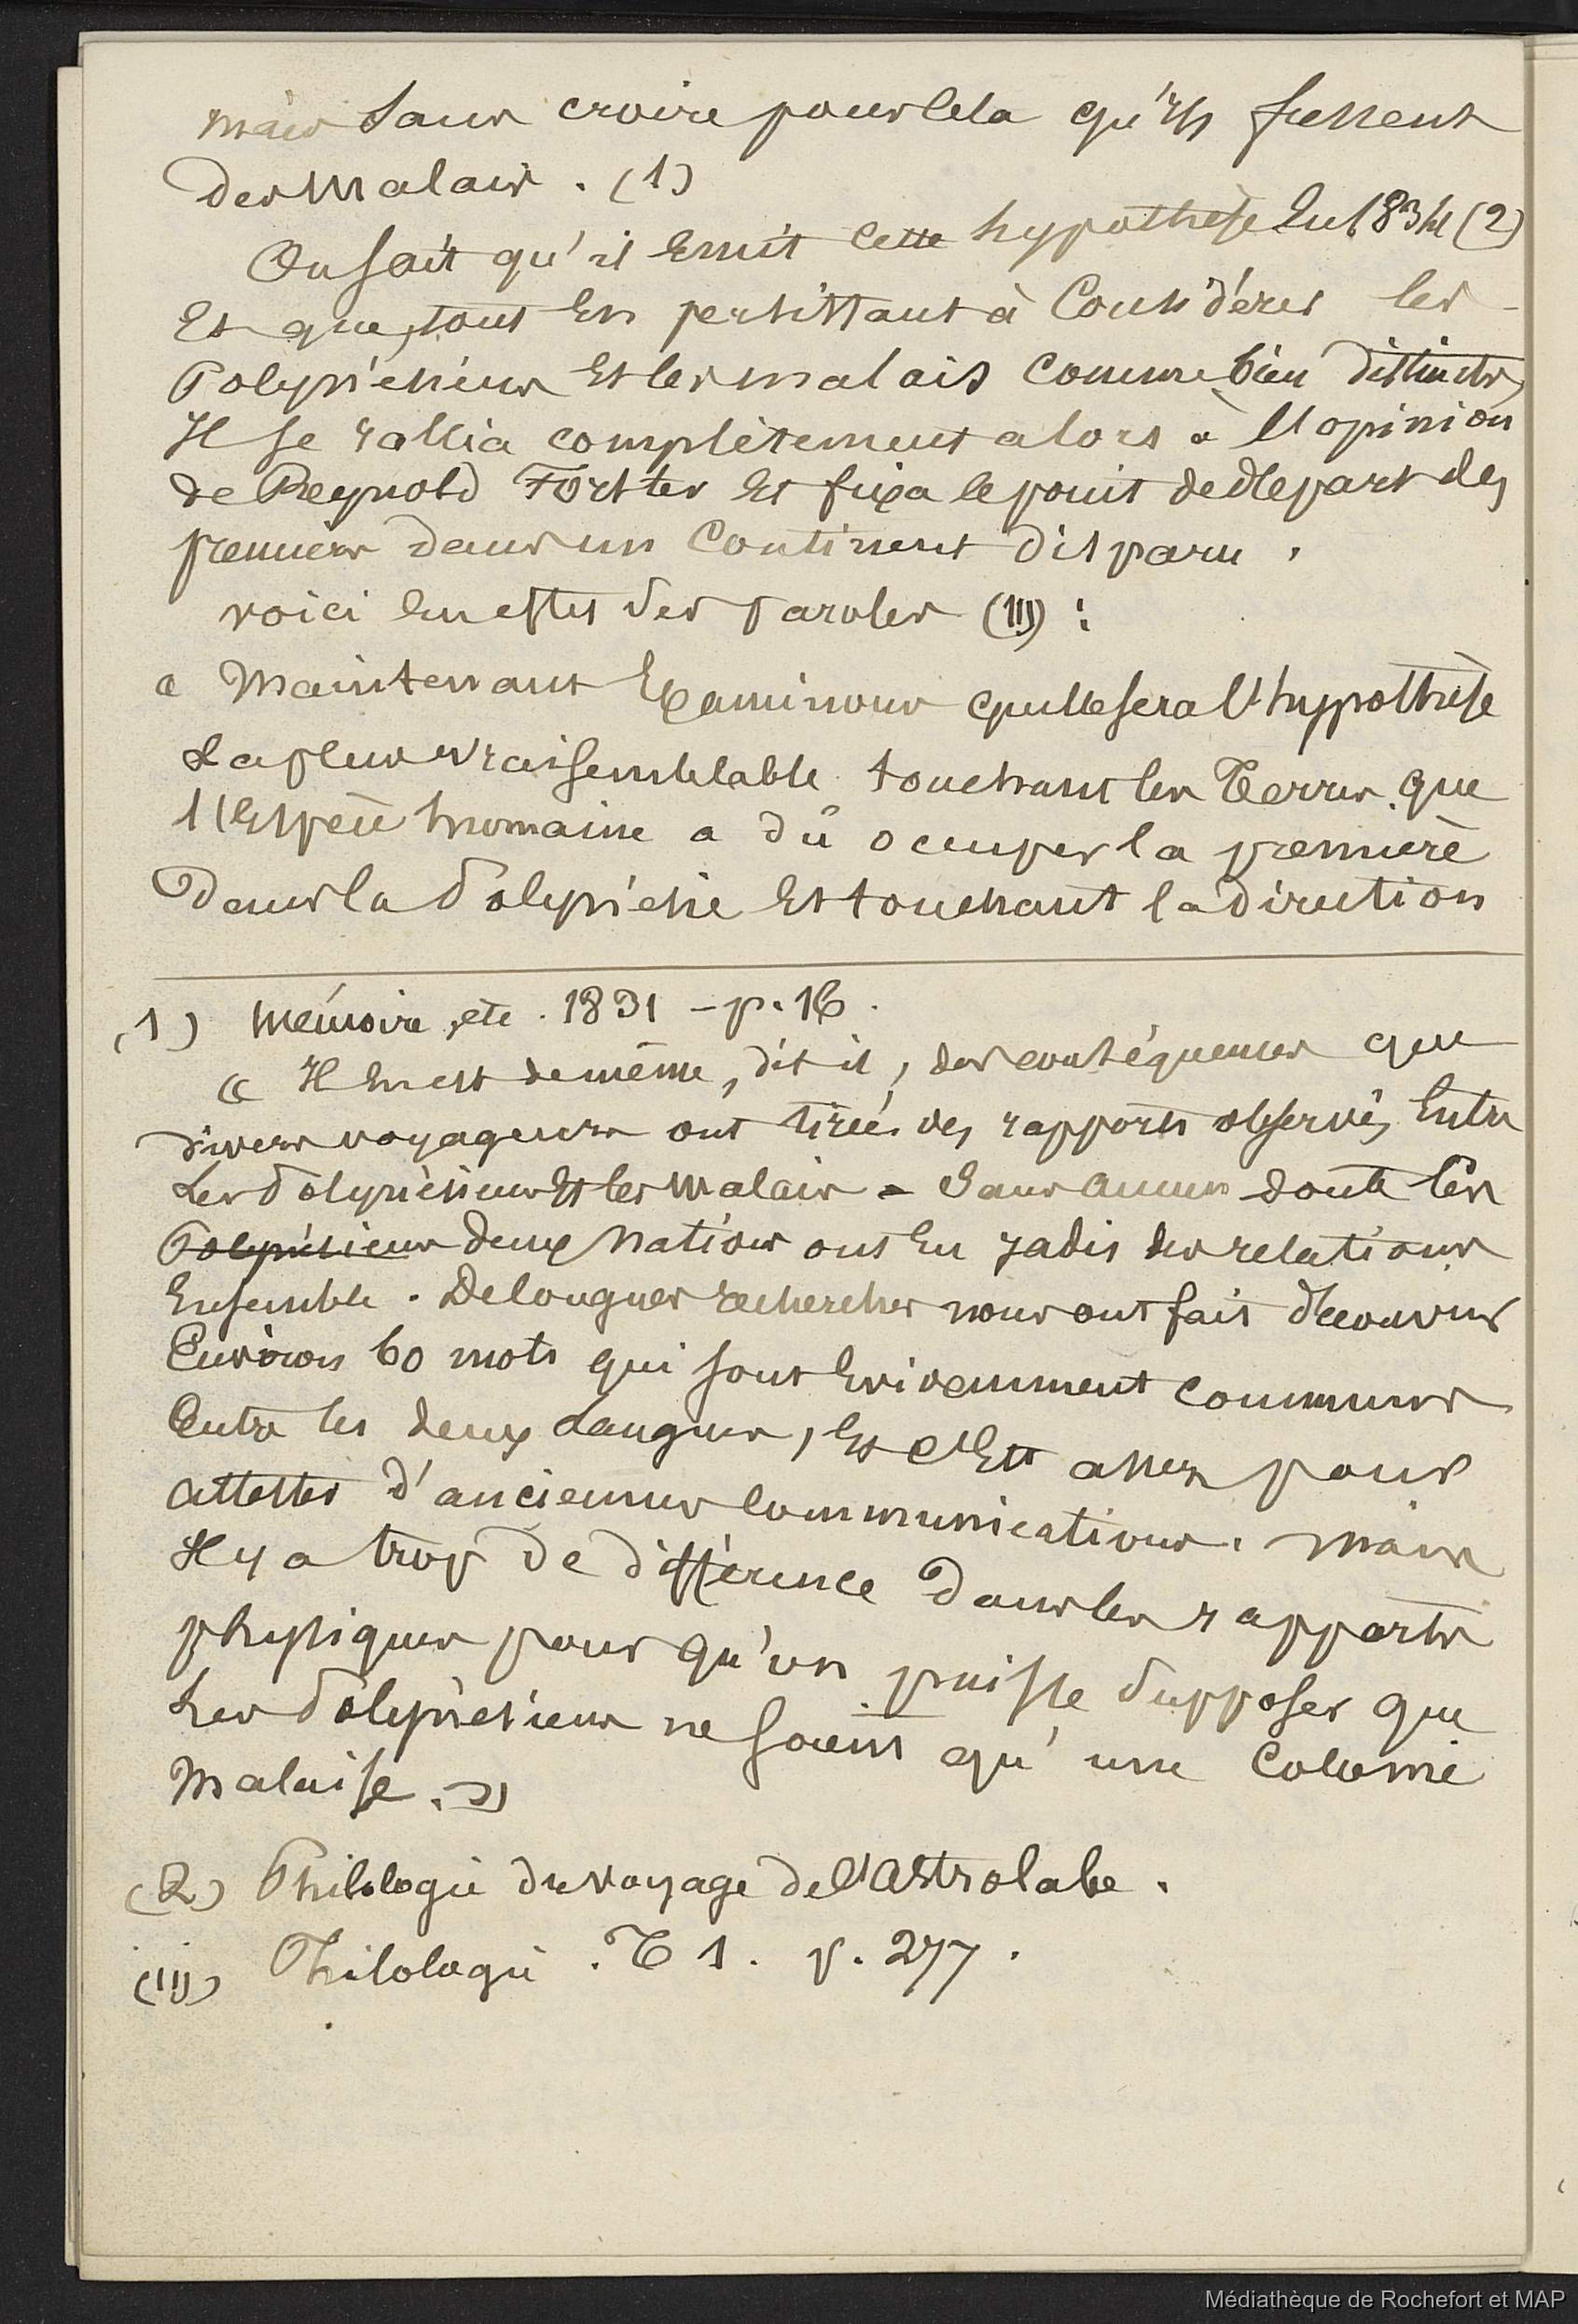 mais sans croire pour cela qu'ils fussent
des Malais. (1)
On sait qu'il Emit cette hypothèse En 1834 (2)
Et que, tout En persistant à Considérer les
Polynésiens Et les malais comme bien distincts,
Il se rallia complètement alors à l'opinion
de Reynold Forster Et fixa le point de départ des
premiers dans un Continent disparu.
voici En effet ses paroles (III) :
« Maintenant Examinons quelle sera l'hypothèse
La plus vraisemblable touchant les Terres que
l'Espèce humaine a dû occuper la première
Dans la Polynésie Et touchant la direction
(1) Mémoire, etc. 1831 - p. 16.
« Il En est de même, dit-il, des conséquences que
divers voyageurs ont tirées des rapports observés Entre
Les Polynésiens Et les Malais - Sans aucun doute les
Polynésiens deux Nations ont Eu jadis des relations
Ensemble. De longues recherches nous ont fait découvrir
Environ 60 mots qui sont Evidemment communs
Entre les deux Langues, Et c'Est assez pour
attester d'anciennes communications. mais
Il y a trop de différence Dans les rapports
physiques pour qu'on puisse supposer que
Les Polynésiens ne soient qu'une Colonie
Malaise. »
(2) Philologie du voyage de l'Astrolabe.
(III) Philologie. T 1. p. 277.
Médiathèque de Rochefort et MAP